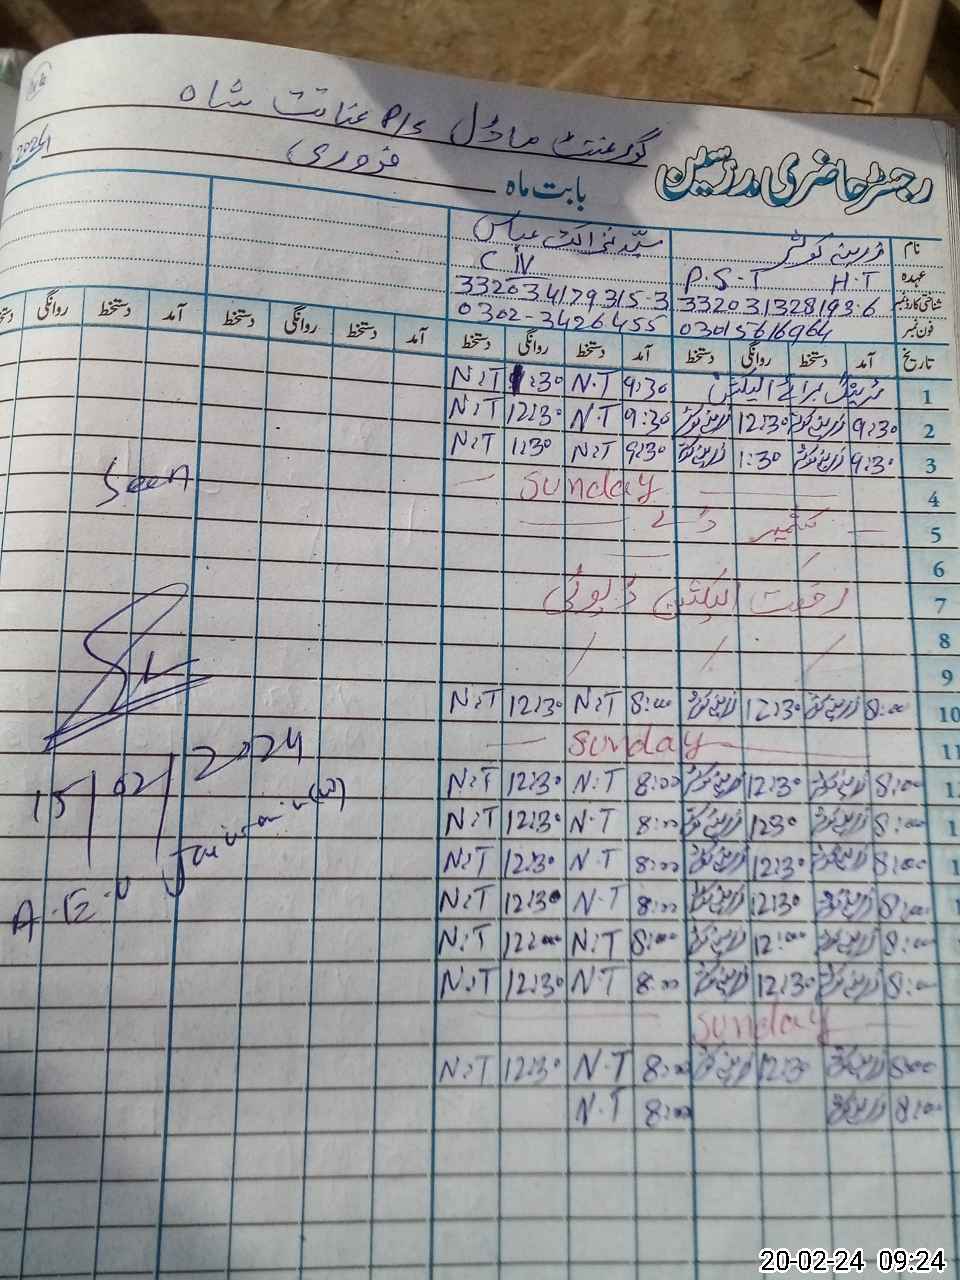 گورنمنٹ ماڈل P/S عنائت شاہ
رجسٹر حاضری مدرسین
بابت ماہ فروری 2024
نام زرینہ کوثر سید نزاکت عباس
عہدہ H.T P.S.T C IV
شناختی کارڈ نمبر 3320313281936 33203 4179315-3
فون نمبر 03015616964 0302-3426455
تاریخ آمد دستخط روانگی دستخط آمد دستخط روانگی دستخط آمد دستخط روانگی دستخط آمد دستخط روانگی دستخط
1 ٹریننگ برائے الیکشن 9:30 N.T 1:30 N.T
2 9:30 زرینہ کوثر 12:30 زرینہ کوثر 9:30 N.T 12:30 N.T
3 9:30 زرینہ کوثر 1:30 زرینہ کوثر 9:30 N.T 1:30 N.T
4 Sunday
5 کشمیر ڈے
6
7 رخصت الیکشن ڈیوٹی
8
9
10 8:00 زرینہ کوثر 12:30 زرینہ کوثر 8:00 N.T 12:30 N.T
11 Sunday
8:00 زرینہ کوثر 12:30 زرینہ کوثر 8:00 N.T 12:30 N.T
8:00 زرینہ کوثر 1230 زرینہ کوثر 8:00 N.T 12:30 N.T
8:00 زرینہ کوثر 12:30 زرینہ کوثر 8:00 N.T 12:30 N.T
8:00 زرینہ کوثر 12:30 زرینہ کوثر 8:00 N.T 12:30 N.T
8:00 زرینہ کوثر 12:00 زرینہ کوثر 8:00 N.T 12:00 N.T
8:00 زرینہ کوثر 12:30 زرینہ کوثر 8:00 N.T 12:30 N.T
Sunday
8:00 زرینہ کوثر 12:30 زرینہ کوثر 8:00 N.T 12:30 N.T
8:00 زرینہ کوثر 8:00 N.T
Seen
15/02/2024
A.E.O
20-02-24 09:24